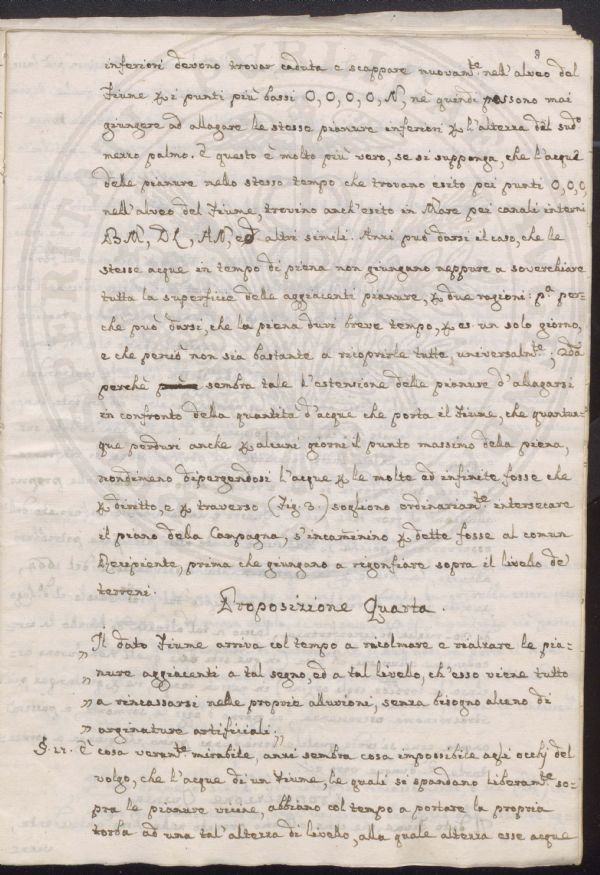 8
inferiori devono trovar caduta e scappare nuovam.te nell'alveo del
Fiume p i punti più bassi O, O, O, O, N, nè quindi possono mai
giungere ad allagare le stesse pianure inferiori p l'altezza del sud.o
mezzo palmo. E questo è molto più vero, se si supponga, che l'acque
delle pianure nello stesso tempo che trovano esito pei punti O, O, O
nell'alveo del Fiume, trovino anch'esito in Mare pei canali interni
BM, DL, AN, ed altri simili. Anzi può darsi il caso, che le
stesse acque in tempo di piena non giungano neppure a soverchiare
tutta la superficie delle aggiacenti pianure, p due ragioni: p.a per-
che può darsi, che la piena duri breve tempo, p es. un solo giorno,
e che perciò non sia bastante a ricoprirle tutte universalm.te; 2da
perchè sembra tale l'estensione delle pianure d'allagarsi
in confronto della quantità d'acque che porta il Fiume, che quantun-
que perduri anche p alcuni giorni il punto massimo della piena,
nondimeno dispargendosi l'acque p le molte ad infinite fosse che
p diritto, e p traverso (Fig. 3.) sogliono ordinariam.te intersecare
il piano della Campagna, s'incaminino p dette fosse al comun
Recipiente, prima che giungano a rigonfiare sopra il livello de'
terreni.
Proposizione Quarta.
Il dato Fiume arriva col tempo a ricolmare e rialzare le pia-
„ nure aggiacenti a tal segno, ed a tal livello, ch'esso viene tutto
„ a rincassarsi nelle proprie alluvioni, senza bisogno alcuno di
„ arginature artificiali.„
§. 11. È cosa veram.te mirabile, anzi sembra cosa impossibile agli occhj del
volgo, che l'acque di un Fiume, le quali si spandano liberam.te so-
pra le pianure vicine, abbiano col tempo a portare la propria
torba ad una tal'altezza di livello, alla quale altezza esse acque